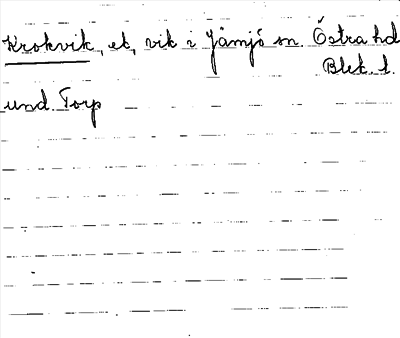 Krokvik, et, vik i Jämjö sn. Östra hd
Blek. l.
und. Torp